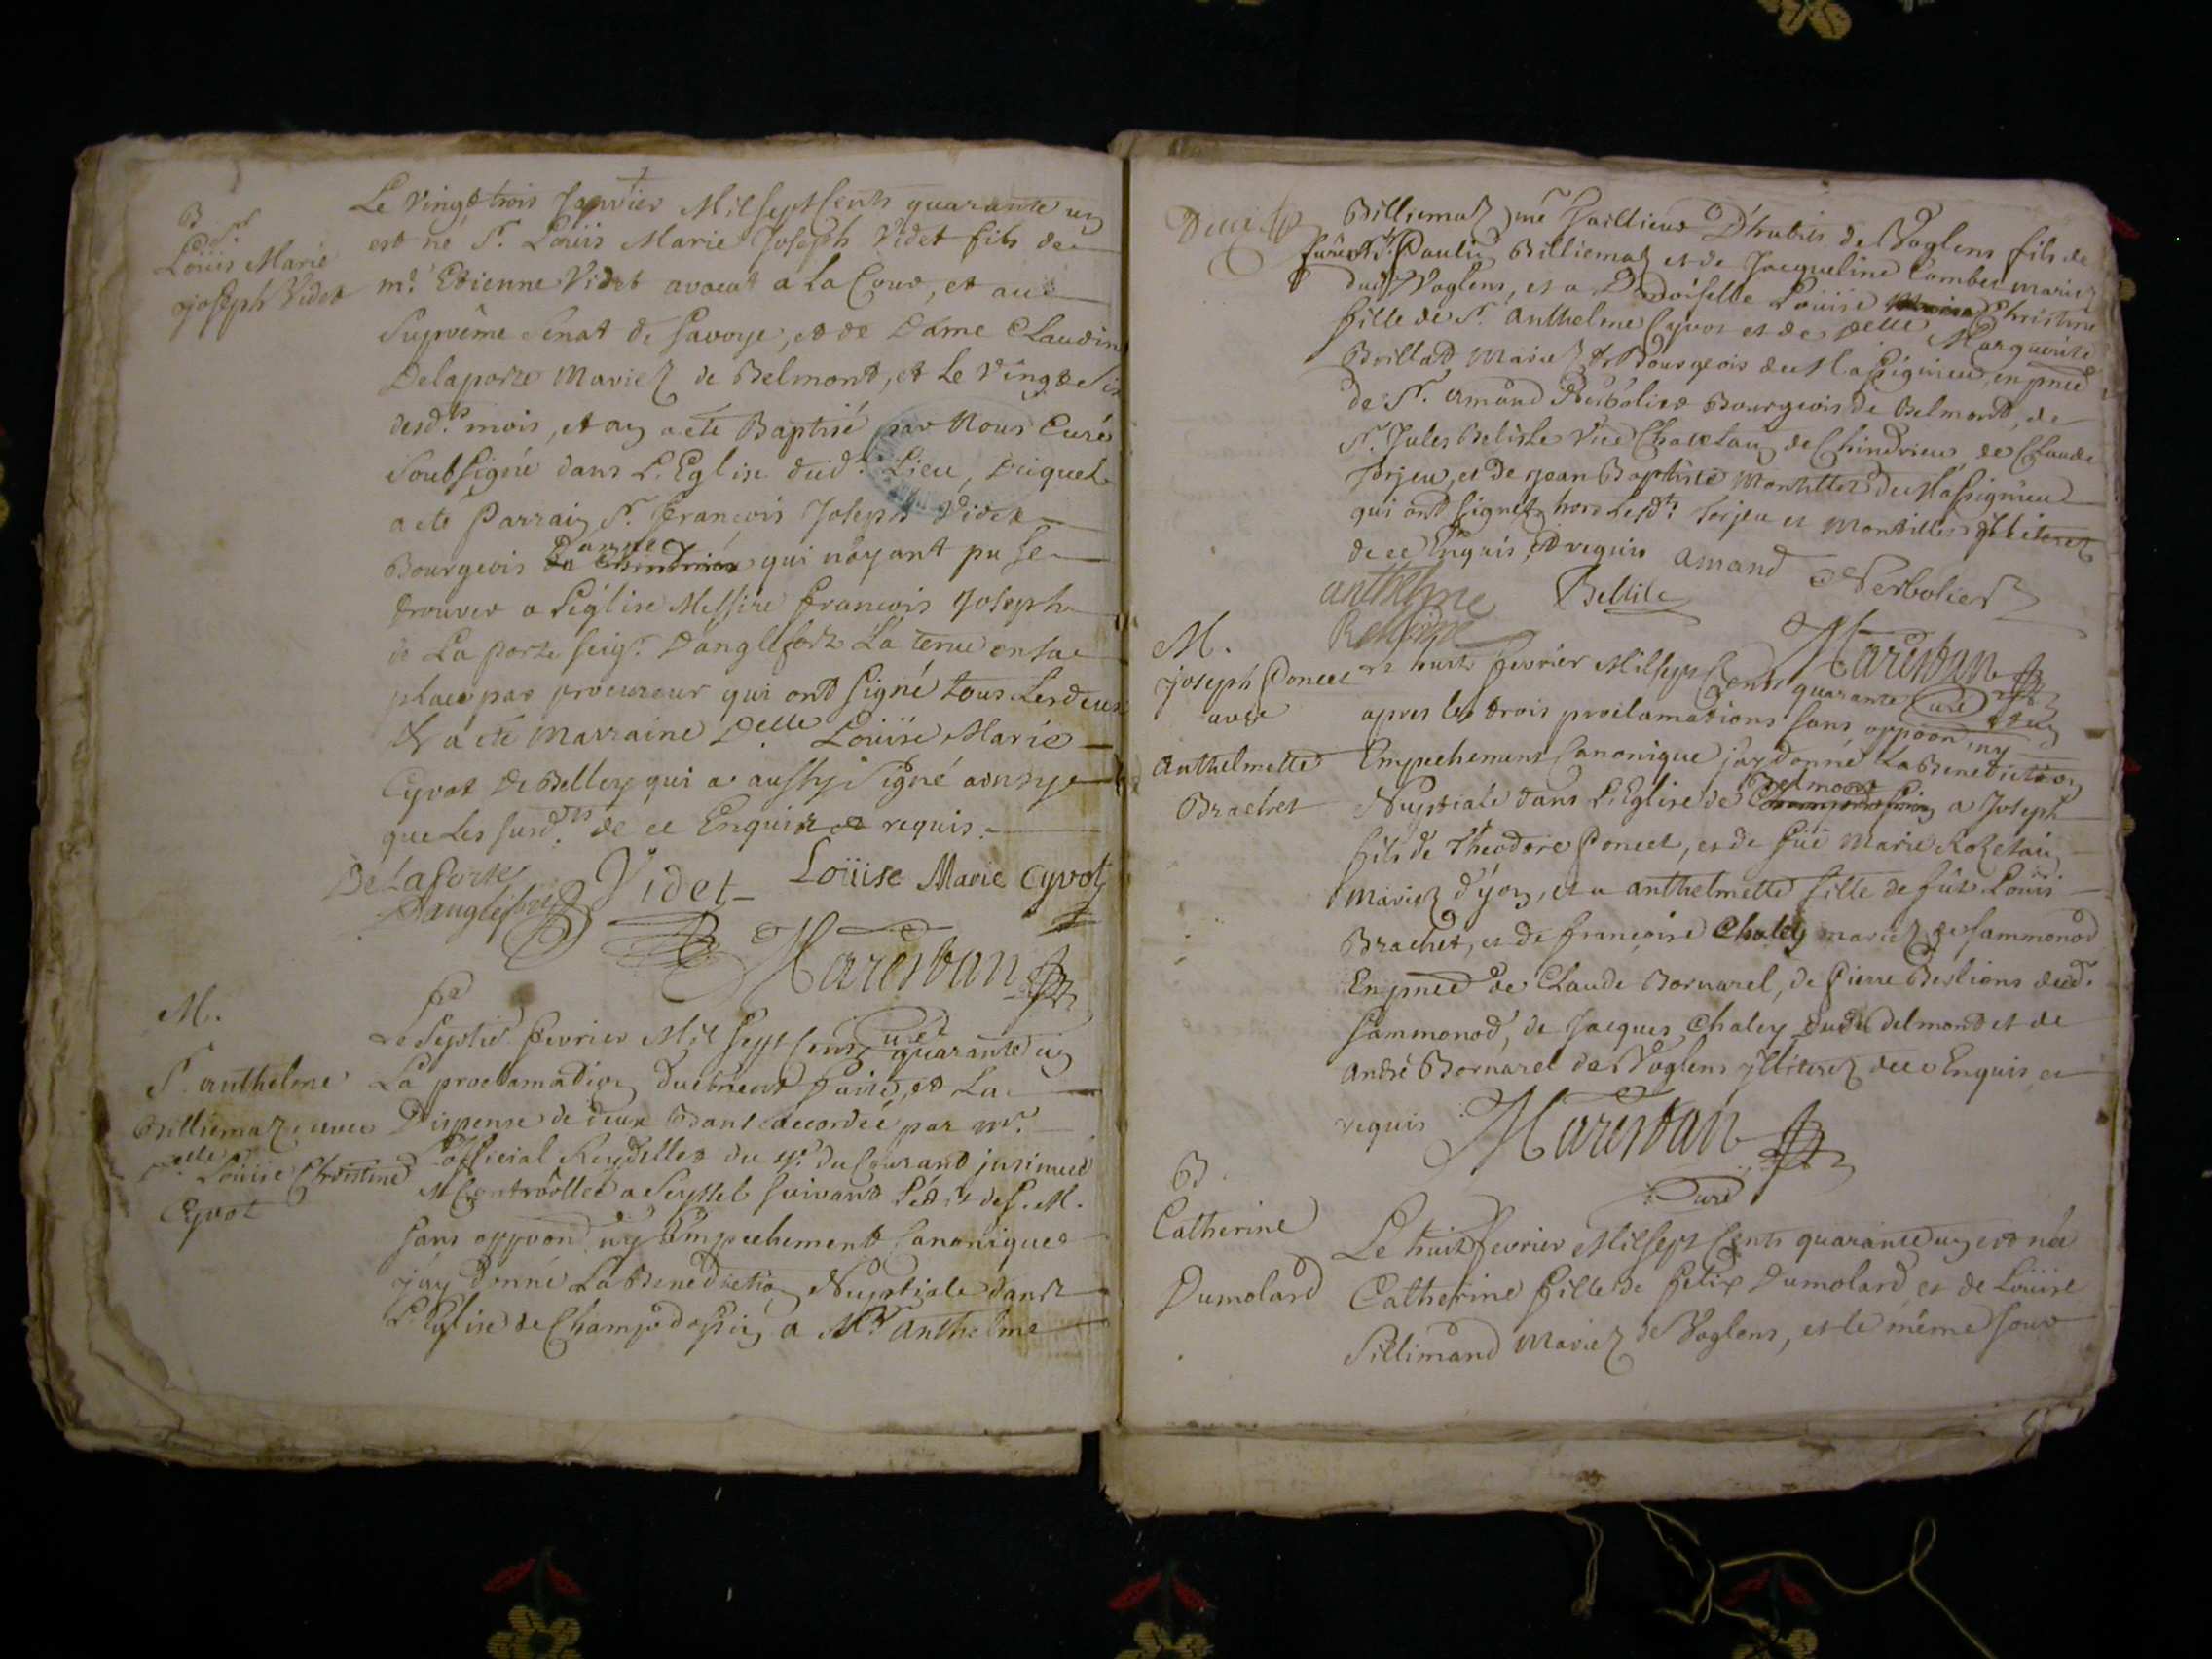 B
Sr
Loüis Marie
joseph Videt
Le vingt trois Janvier Mil sept cents quarante un
est né Sr. Loüis Marie Joseph Videt fils de
mr. Etienne Videt avocat a La Cour, et au
Suprême Senat de Savoye, et de Dame Claudine
Delaporte mariez de Belmont, et Le vingt six
desdts mois, et an a eté Baptisé par Nous Curé
Soubsigné dans L'Eglise dudt. Lieu, Duquel
a eté Parrain Sr. François Joseph Videt
Bourgeois qui n'ayant pu se
trouver a l'église Messire françois Joseph
de La porte seigr. D'anglefort La tenu en sa
place par procureur qui ont signé tous Lesdeux
Et a eté Marraine Delle Loüise Marie
Cyvot de Belley qui a aussy signé
que Les susdts. de ce Enquis et requis.
De Laporte
Danglefort
Videt
Loüise Marie Cyvot
Marestan
Curé
M.
Sr. anthelme
Billiemaz avec
Delle Loüise Christine
Cyvot
Le Septie fevrier Mil sept cents quarante un
La proclamation duëment faite, et La
Dispense de deux Bans accordée par mr.
L'official Reydellet du 4e. du Courant jnsinuée
et Controollée a Seyssel suivant L'édit de S. M.
sans oppoon ny Empechement Canonique
j'ay donné La Benediction Nuptiale dans
L'Eglise de Champdossin a Mr anthelme
Billiemaz me Tailleur D'habits de Voglens fils de
Sr. Paulin Billiemaz et de Jacqueline Combet mariez
dudt Voglens, et a Dmoiselle Loüise Christine
fille de Sr. anthelme Cyvot et de Delle Marguerite
Brillat Mariez et Bourgeois de Massignieu, en pnce
de Sr. amand Berbolier Bourgeois de Belmont, de
Sr. Jules Belisle Vice Chatelain de Chindrieu de Claude
Torjeu, et de jean Baptiste Montillet de Massignieu
qui ont signet hors Lesdts Torjeu et Montillet jlliterez
de ce Enquis, et requis
amand Berbolier
anthelme
Bellile
Marestan
Curé
M.
joseph Poncet
avec
Anthelmette
Brachet
Le huit fevrier Mil sept Cents quarante et un
apres les trois proclamations sans oppoon, ny
Empechement Canonique j'ay donné La Benediction
Nuptiale dans L'Eglise de Belmont a Joseph
fils de Theodore Poncet, et de füe Marie Rozetain
Mariez d'yon, et a anthelmette fille de füt Loüis
Brachet, et de françoise Chaley mariez de Sammonod
En pnce de Claude Bornarel, de Pierre Berlions dudt
Sammonod, de Jacques Chaley dudt Belmont et de
André Bornarel de Voglens jlliterez de ce Enquis et
requis
Marestan
Curé
B.
Catherine
Dumolard
Le huit fevrier Mil sept Cents quarante un est née
Catherine fille de felix Dumolard et de Loüise
Sillimand Mariez de Voglens, et le même jour